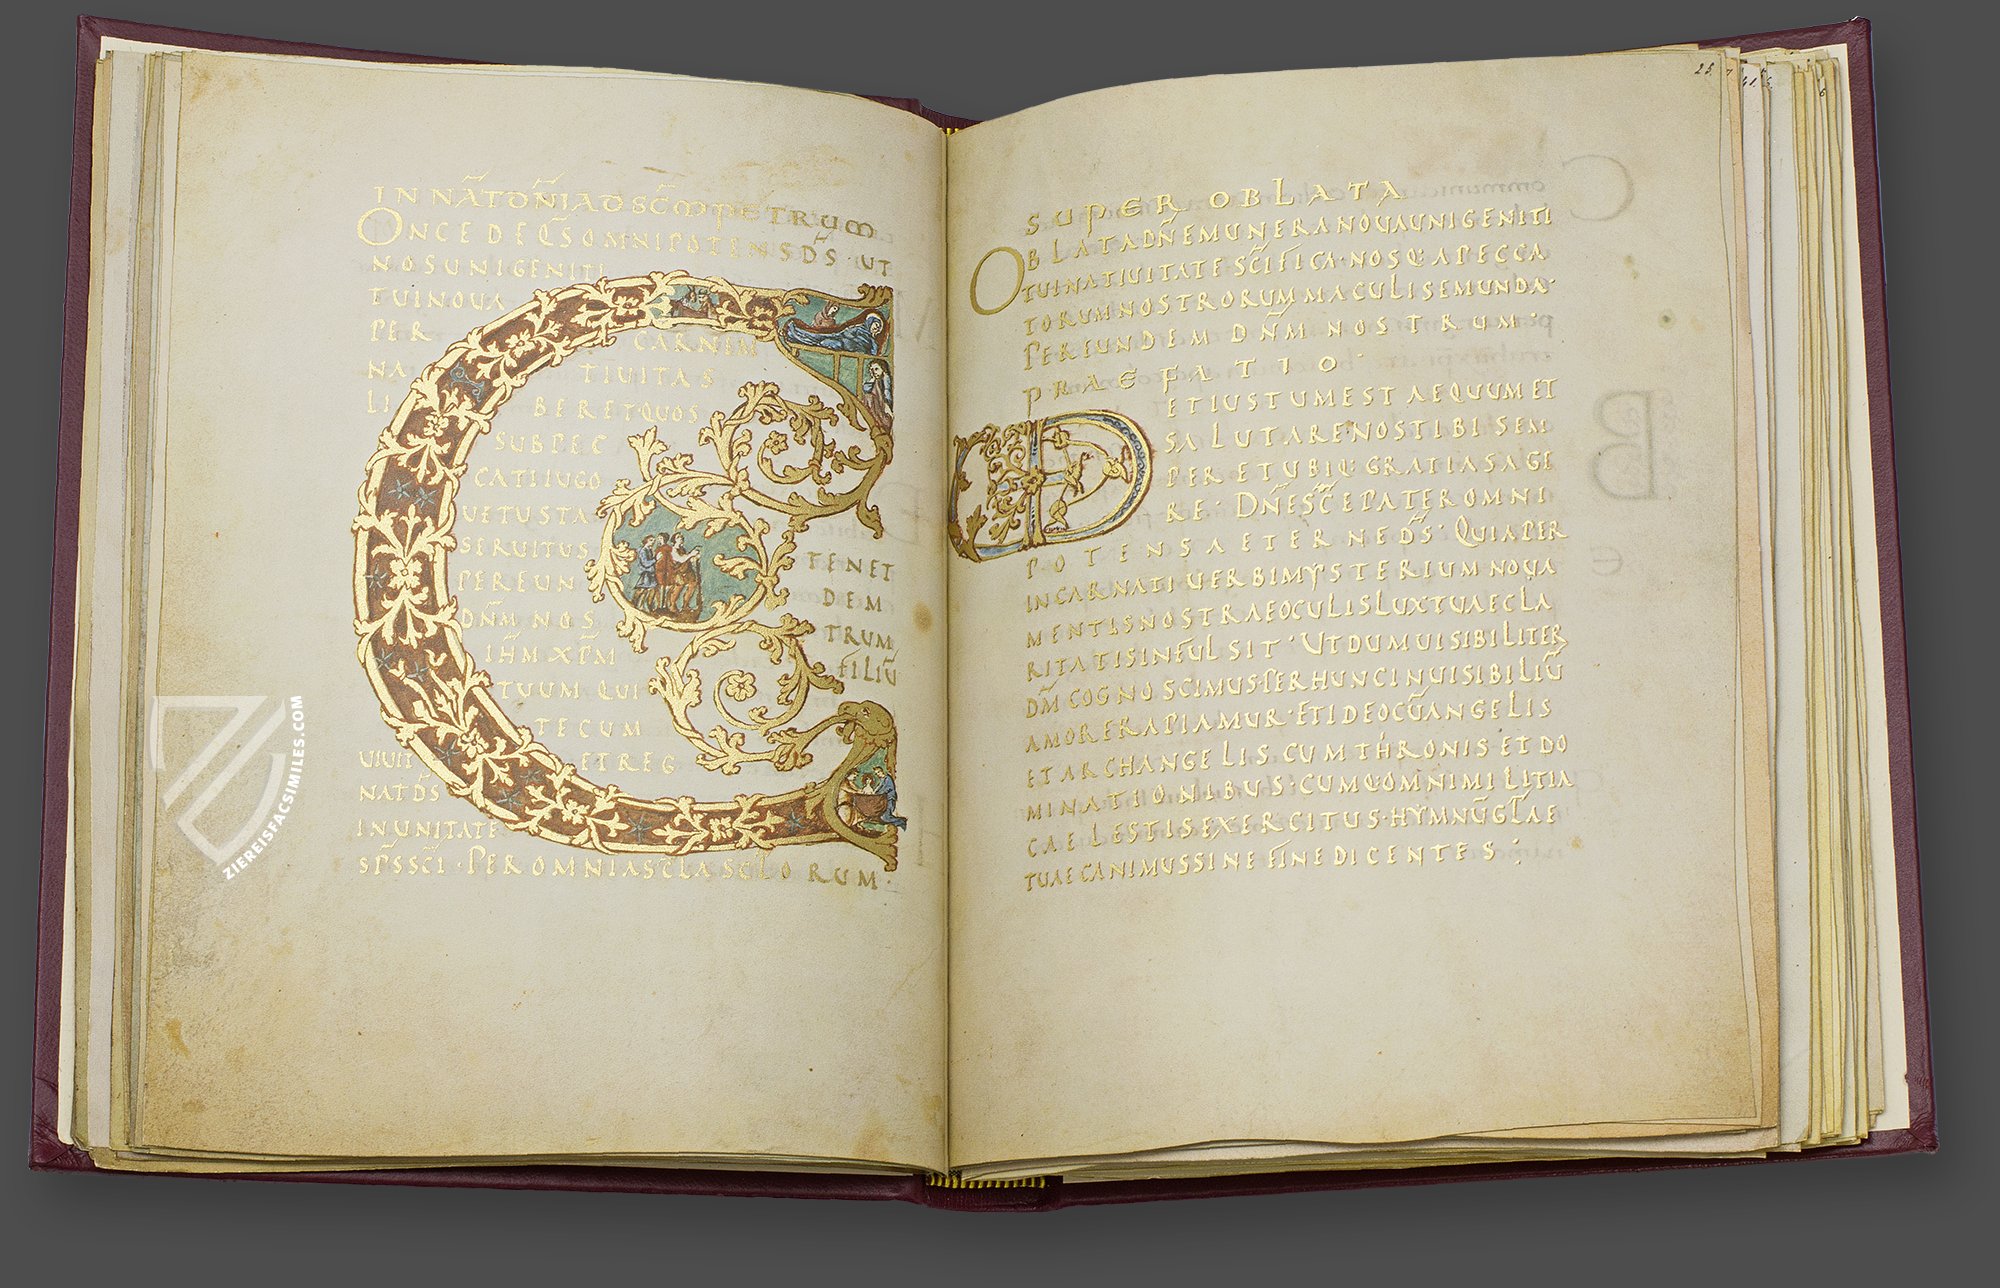 IN NAT DNI AD SCM PETRUM
ONCEDE QS OMNIPOTENS DS · UT
NOS UNIGENITI
TUI NOUA
PER CARNEM
NA TIUITAS
LI BERET · QUOS
SUB PEC
CATI IUGO
UETUSTA
SERUITUS TENET
PER EUN DEM
DNM NOS TRUM
IHM XPM FILIU
TUUM QUI
TECUM
UIUIT ET REG
NAT DS
IN UNITATE
SPS SCI · PER OMNIA SCLA SCLORUM ·
ZIEREISFACSIMILES.COM
25.
SUPER OBLATA
OBLATA DNE MUNERA NOUA UNIGENITI
TUI NATIUITATE SCIFICA · NOSQ: A PECCA
TORUM NOSTRORUM MACULIS EMUNDA ·
PER EUNDEM DNM NOSTRUM ·
PRAEFATIO ·
ET IUSTUM EST AEQUUM ET
SALUTARE NOS TIBI SEM
PER ET UBIQ: GRATIAS AGE
RE · DNE SCE PATER OMNI
POTENS AETERNE DS · QUIA PER
INCARNATI UERBI MYSTERIUM NOUA
MENTIS NOSTRAE OCULIS LUX TUAE CLA
RITATIS INFULSIT · UT DUM UISIBILITER
DM COGNOSCIMUS PER HUNC INUISIBILIU
AMORE RAPIAMUR · ET IDEO CU ANGELIS
ET ARCHANGELIS CUM THRONIS ET DO
MINATIONIBUS CUMQ: OMNI MILITIA
CAELESTIS EXERCITUS · HYMNU GLAE
TUAE CANIMUS SINE FINE DICENTES ;